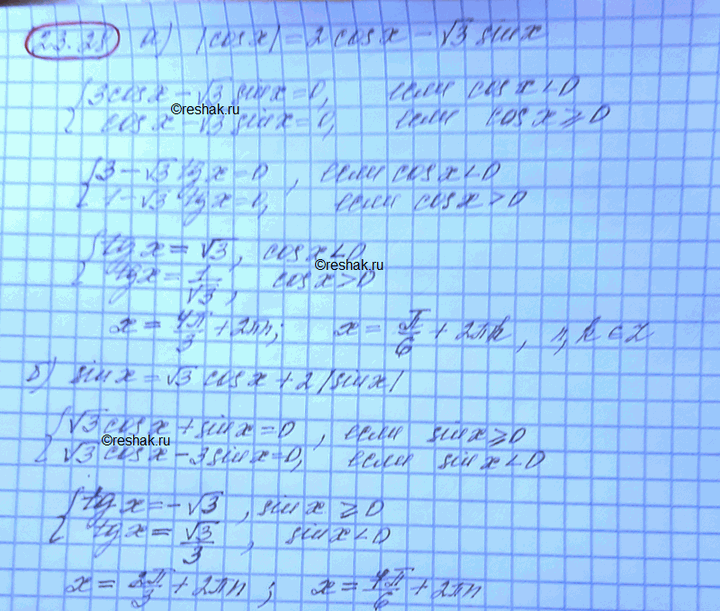 23.28 а) |cos x| = 2 cos x − √3 sin x
{ 3 cos x − √3 sin x = 0, если cos x < 0
cos x − √3 sin x = 0, если cos x ⩾ 0
©reshak.ru
{ 3 − √3 tg x = 0, если cos x < 0
1 − √3 tg x = 0, если cos x > 0
{ tg x = √3, cos x < 0
tg x = 1/√3, cos x > 0
©reshak.ru
x = 4π/3 + 2πn; x = π/6 + 2πk, n, k ∈ Z
б) sin x = √3 cos x + 2 |sin x|
{ √3 cos x + sin x = 0, если sin x ⩾ 0
√3 cos x − 3 sin x = 0, если sin x < 0
©reshak.ru
{ tg x = −√3, sin x ⩾ 0
tg x = √3/3, sin x < 0
x = 2π/3 + 2πn; x = 7π/6 + 2πn